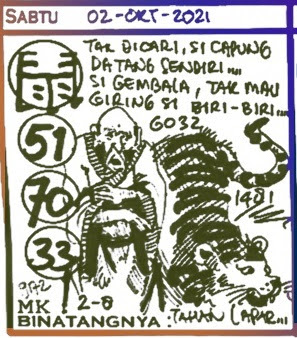 SABTU 02-OKT-2021
TAK DICARI, SI CAPUNG
DATANG SENDIRI....
SI GEMBALA, TAK MAU
GIRING SI BIRI-BIRI...
6032
51
70
1481
33
MK : 2-8
BINATANGNYA : TAHAN LAPAR...